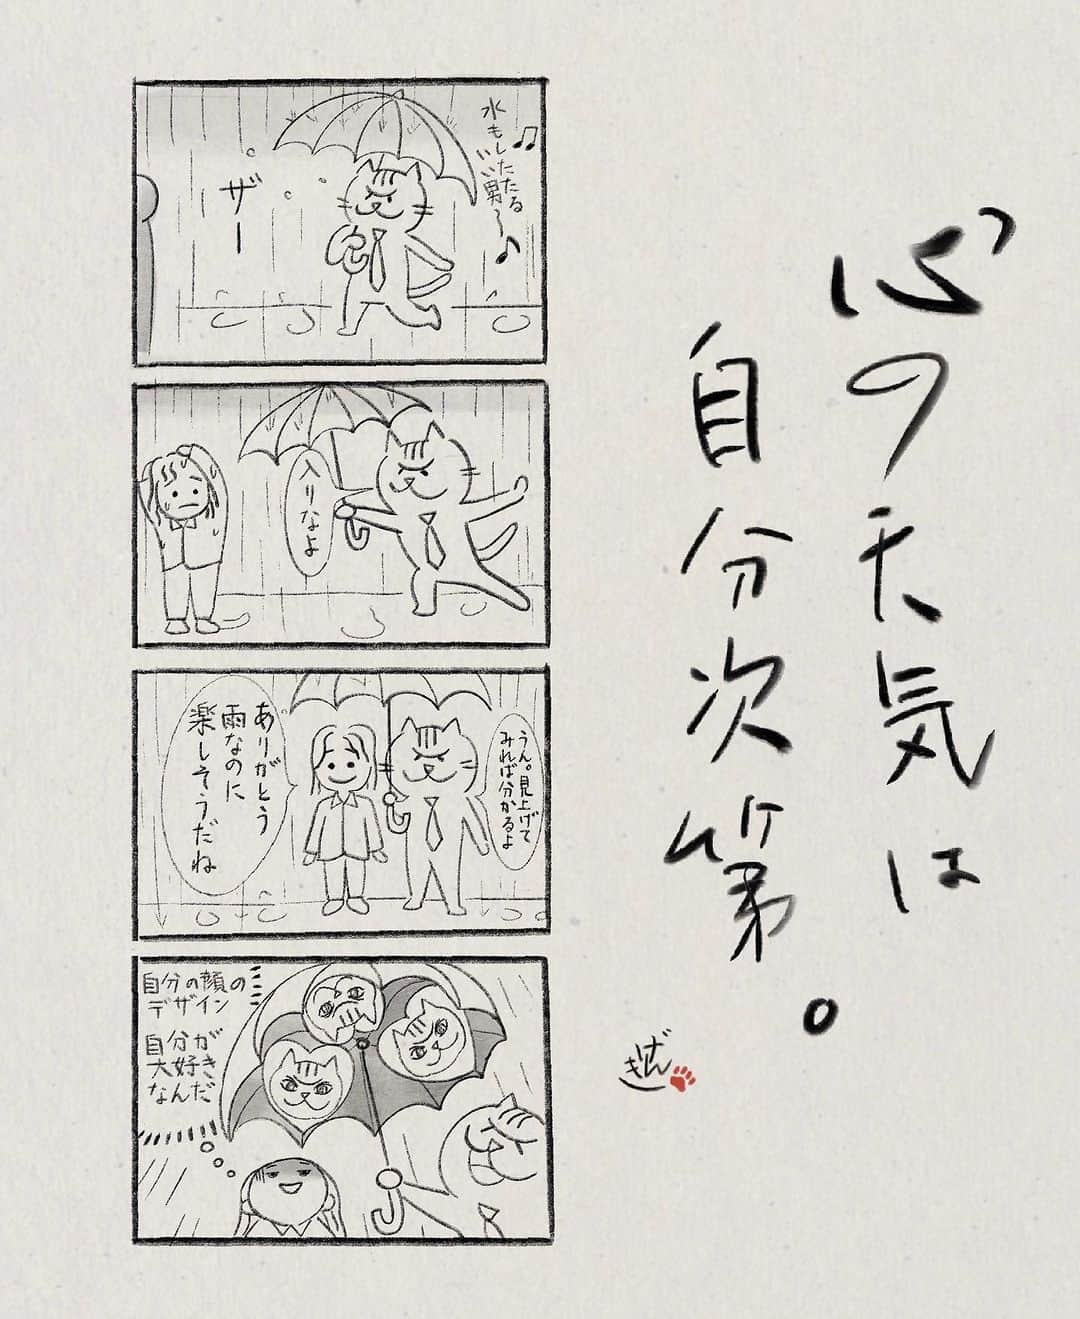 心の天気は
自分次第。
水もしたたる
いい男〜♪
ザー
入りなよ
うん。見上げて
みれば分かるよ
ありがとう
雨なのに
楽しそうだね
自分の顔の
デザイン
自分が
大好き
なんだ